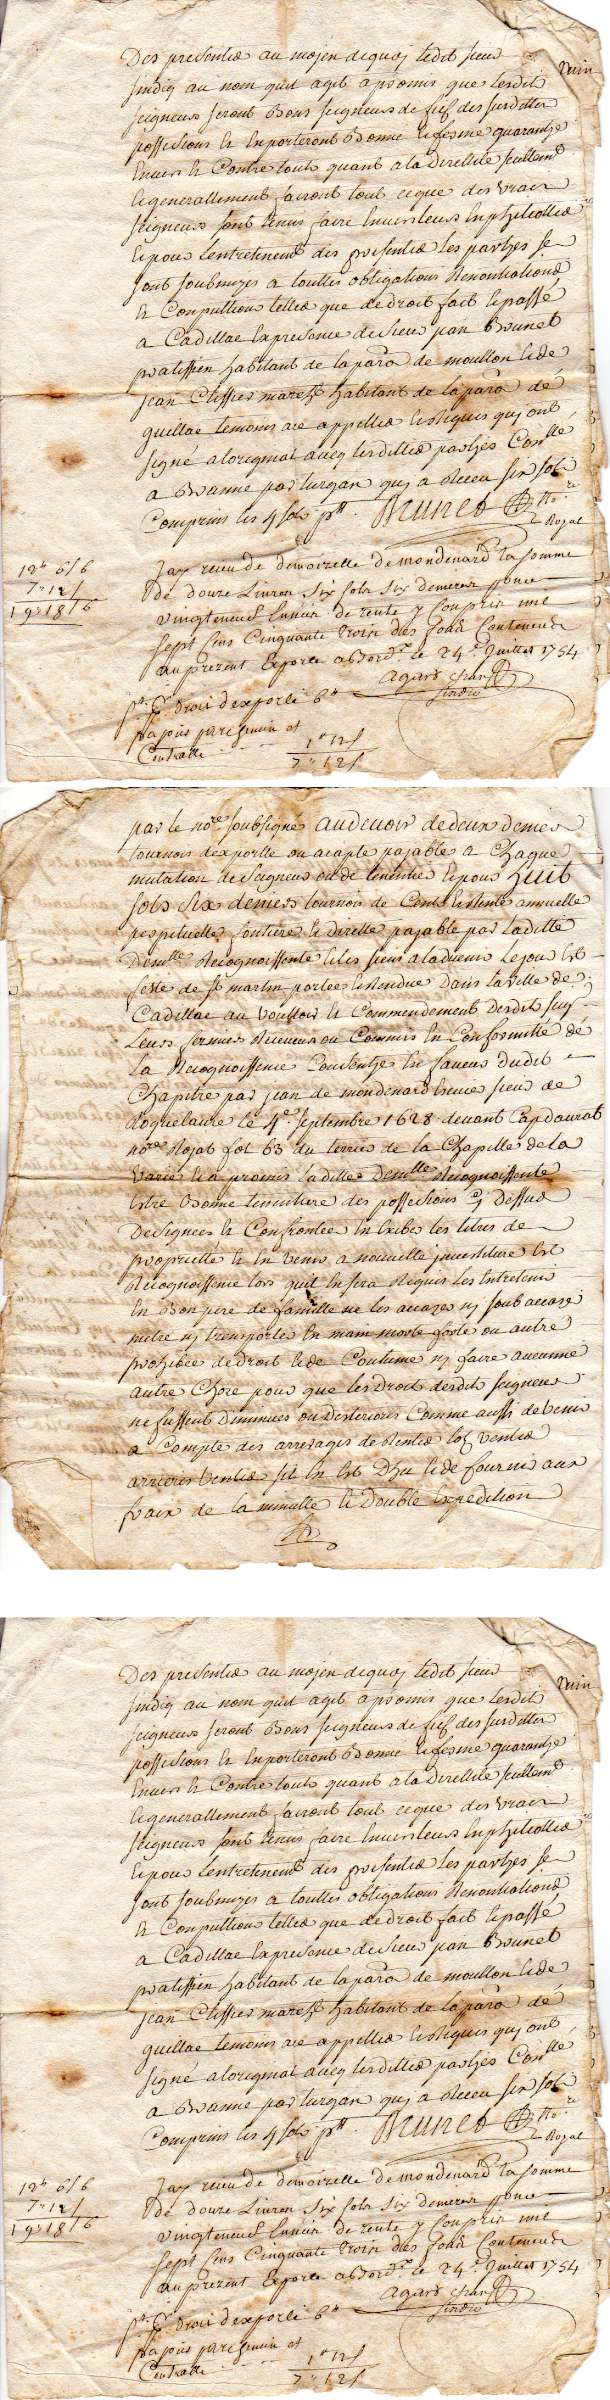 Des presentes au mojen dequoj ledit sieur
sindiq au nom quil agit a promis que lesdits
seigneurs seront bons seigneurs de fief des susdittes
possessions et en porteront bonne et ferme guarantye
envers et contre touts quant a la directité seullemt
et generallement fairont tout ce que des vrais
seigneurs sont tenus faire envers leurs emphiteottes
et pour lentretienemt des presentes les partyes se
sont soubmizes a touttes obligations renontiations
et compultions telles que de droit fait et passé
a Cadillac en presence de sieur jean Brunet
pratissien habitant de la parro de mouillon et de
jean Clissier march habitant de la parro de
guillac temoins ace appelles et requis quj ont
signé a loriginal avecq lesdittes partyes Conllé
a Branne par turgan quj a receu six sols
Comprins les 4 sols pr ll. Brunet Nore
Royal
12ll 6s 6
7 " 12s
19 " 18s 6
Jay receu de demoizelle de mondenard la somme
de douze Livres six sols six deniers pour
vingt neuf année de rente y compris une
sept cens cinquante trois des fonds contenus
au prezent exporle a Bordx le 24e Juillet 1754
agard chan
sindic
pr droit dexporle 6ll
papier parchemin et
Controlle 1ll 12s
7 " 12s
par le nore soubsigné au devoir de deux deniers
tournois dexporlle ou acapte pajable a chaque
mutation de seigneur ou de tenentier et pour huit
sols six deniers tournois de cens et rente annuelle
perpetuelle fontiere et directe pajable par laditte
Demlle recognoissente et les siens a ladvenir le jour et
feste de st martin portée et rendue dans la ville de
Cadillac au vouloir et Commendement desdits sgrs
leurs fermiers receveurs ou Commis en Conformitté de
la recognoissence Consentye en faveur dudit
Chapitre par jean de mondenard ecuier sieur de
Roquelaure le 4e septembre 1628 devant Capdaurat
nore Rojal fol 63 du terrier de la Chapelle de la
varie et a promis laditte Demlle recognoissente
estre bonne tenentiere des possessions cy dessus
designees et Confrontée en exiber les titres de
proprietté et en venir a nouvelle investiture et
recognoissence lors quil en sera requis les entretenir
en bon pere de famille ne les accazer nj soubaccazer
mettre nj transporter en main morte forte ou autre
prohibée de droit et de Coutume nj faire aucunne
autre Choze pour que les droits desdits seigneurs
ne fussent diminues ou deteriores Comme aussi de venir
a Compte des arrerages de rentes lots ventes
arrieres ventes sil en est dhu et de fournir aux
fraix de la minutte et double expedition
Des presentes au mojen dequoj ledit sieur
sindiq au nom quil agit a promis que lesdits
seigneurs seront bons seigneurs de fief des susdittes
possessions et en porteront bonne et ferme guarantye
envers et contre touts quant a la directité seullemt
et generallement fairont tout ce que des vrais
seigneurs sont tenus faire envers leurs emphiteottes
et pour lentretienemt des presentes les partyes se
sont soubmizes a touttes obligations renontiations
et compultions telles que de droit fait et passé
a Cadillac en presence de sieur jean Brunet
pratissien habitant de la parro de mouillon et de
jean Clissier march habitant de la parro de
guillac temoins ace appelles et requis quj ont
signé a loriginal avecq lesdittes partyes Conllé
a Branne par turgan quj a receu six sols
Comprins les 4 sols pr ll. Brunet Nore
Royal
12ll 6s 6
7 " 12s
19 " 18s 6
Jay receu de demoizelle de mondenard la somme
de douze Livres six sols six deniers pour
vingt neuf année de rente y compris une
sept cens cinquante trois des fonds contenus
au prezent exporle a Bordx le 24e Juillet 1754
agard chan
sindic
pr droit dexporle 6ll
papier parchemin et
Controlle 1ll 12s
7 " 12s